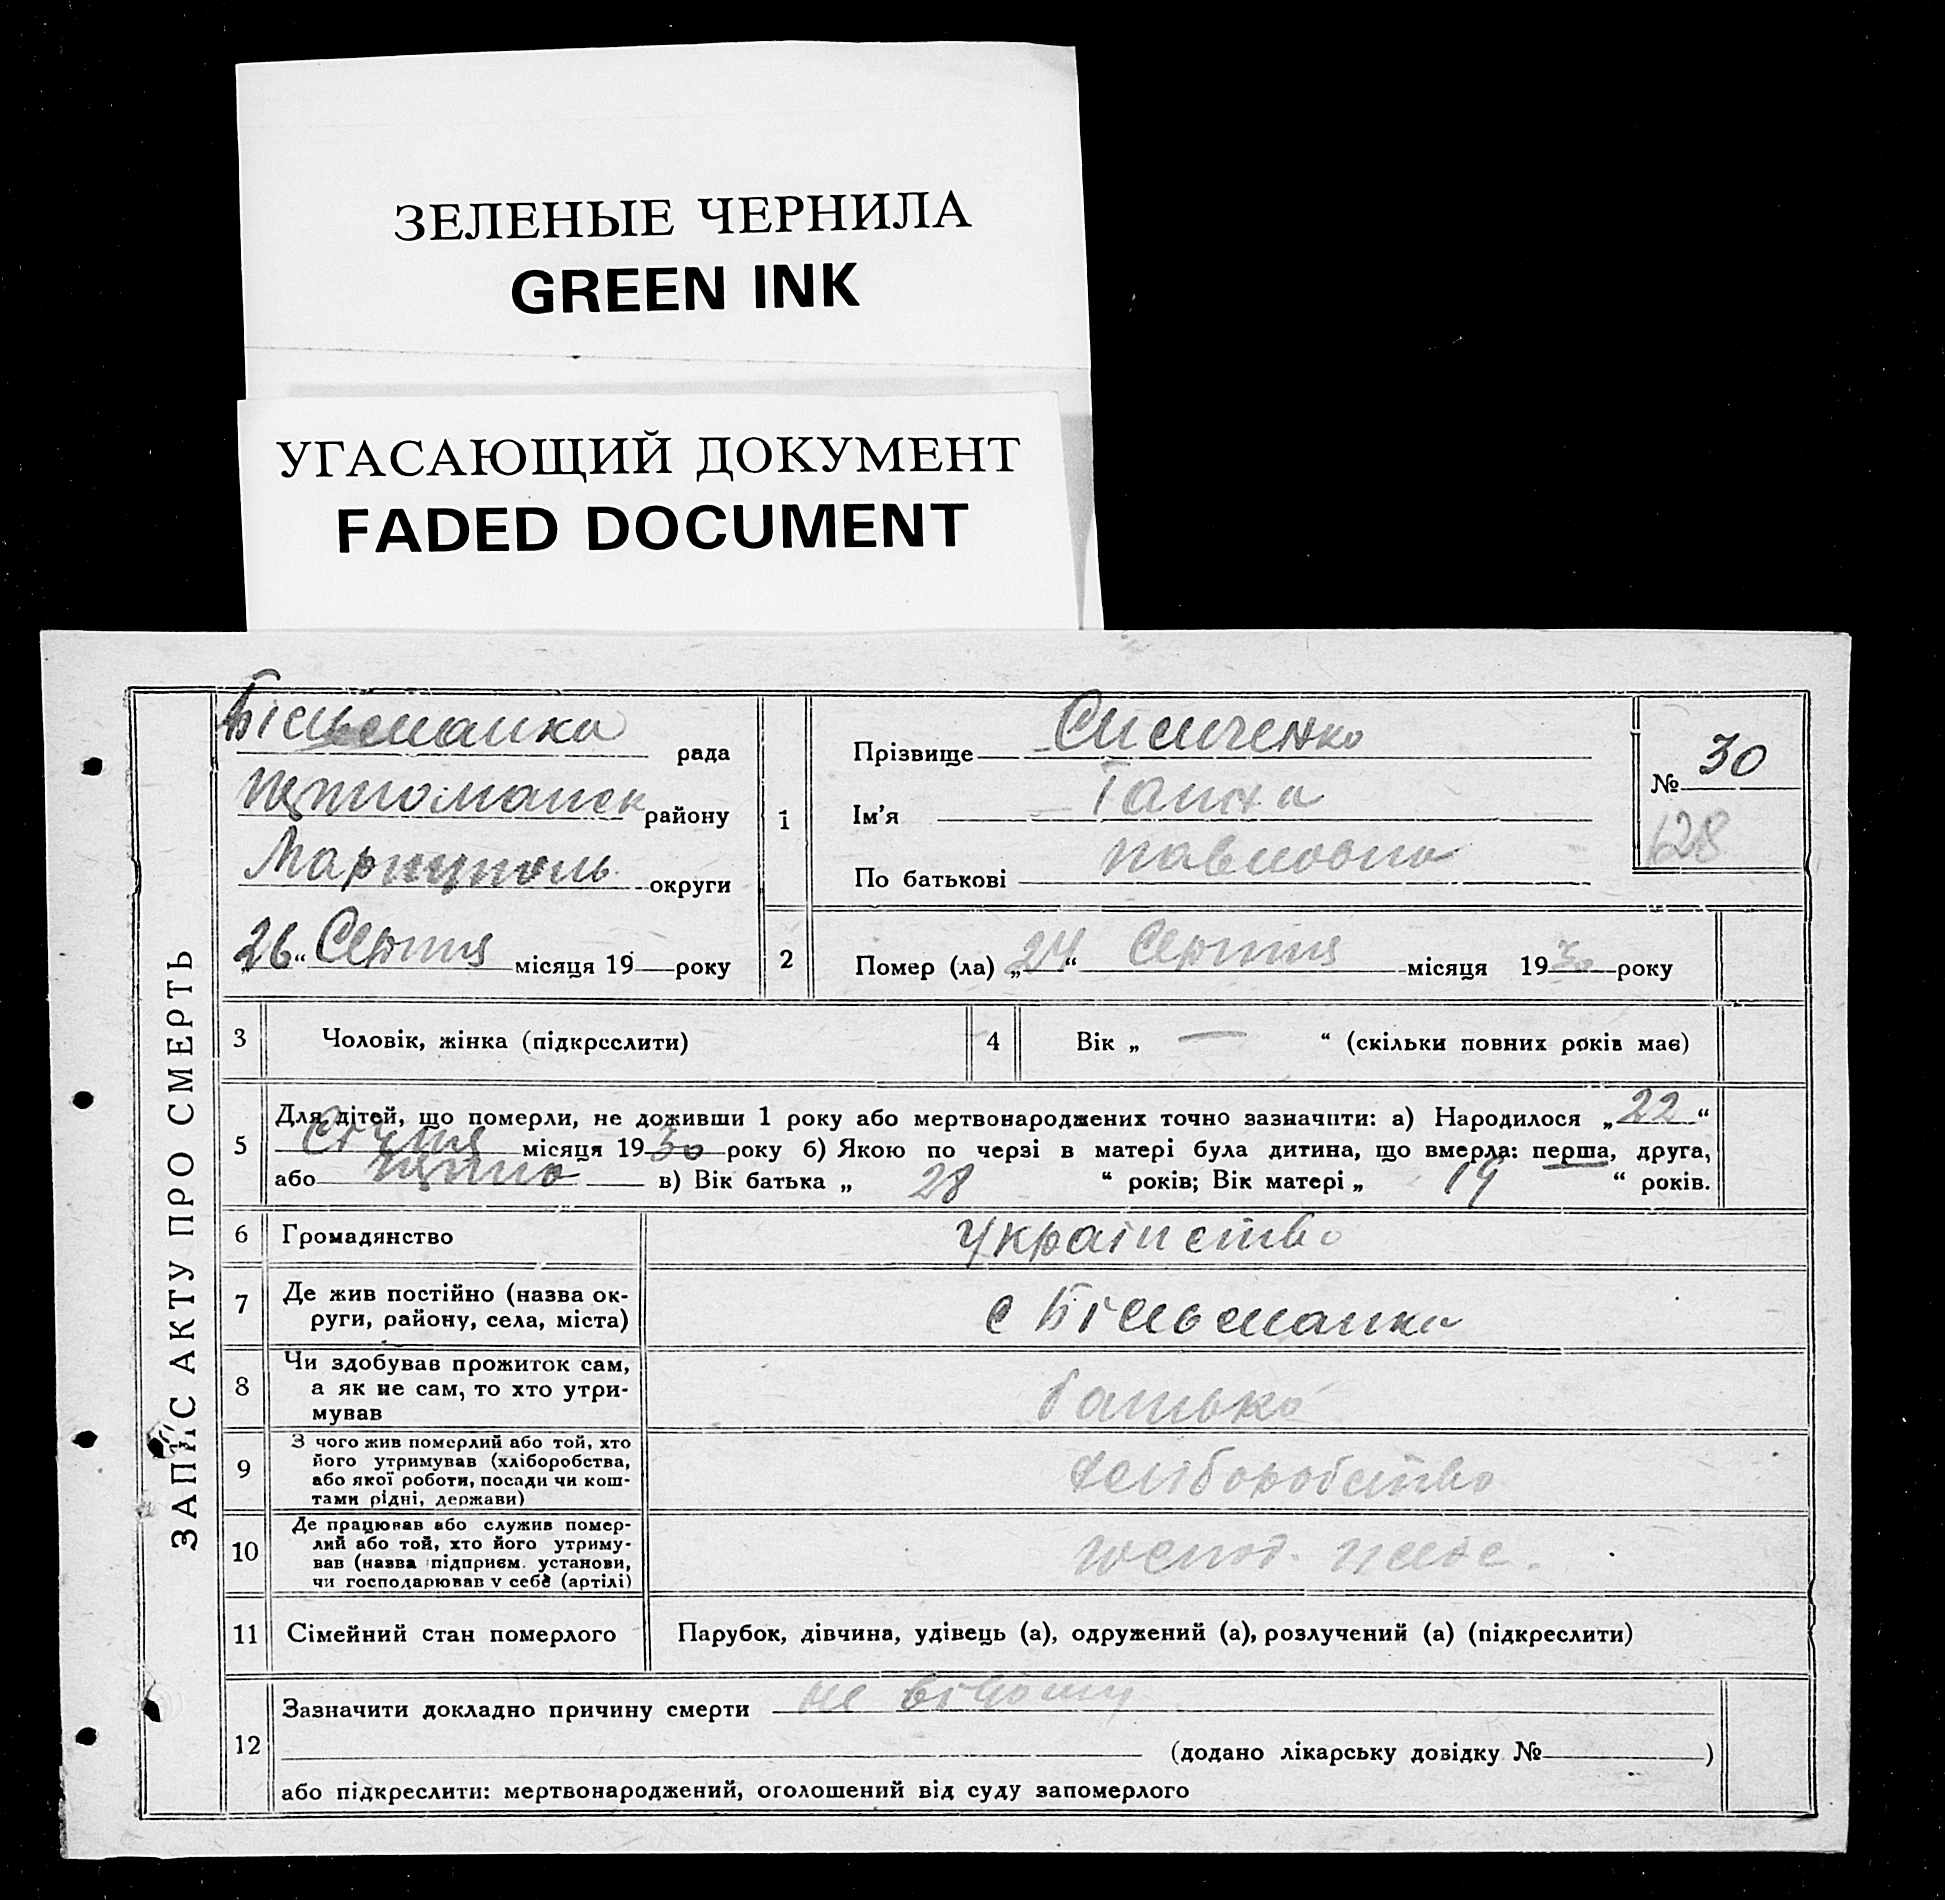 ЗЕЛЕНЫЕ ЧЕРНИЛА
GREEN INK
УГАСАЮЩИЙ ДОКУМЕНТ
FADED DOCUMENT
ЗАПИС АКТУ ПРО СМЕРТЬ
Більманка рада
району
Маріуполь округи
26 " Серпня місяця 19 року
1
Прізвище
Ім'я Ганна
По батькові Павловна
№ 30
128
2 Помер (ла) „ 24 " Серпня місяця 19 30 року
3 Чоловік, жінка (підкреслити)
4 Вік „ — " (скільки повних років має)
5 Для дітей, що померли, не доживши 1 року або мертвонароджених точно зазначити: а) Народилося „ 22 "
Січня місяця 19 30 року б) Якою по черзі в матері була дитина, що вмерла: перша, друга,
або в) Вік батька „ 28 " років; Вік матері „ 19 " років.
6 Громадянство Українство
7 Де жив постійно (назва ок-
руги, району, села, міста) с Більманка
8 Чи здобував прожиток сам,
а як не сам, то хто утри-
мував батько
9 З чого жив померлий або той, хто
його утримував (хліборобства,
або якої роботи, посади чи кош-
тами рідні, держави) хліборобство
10 Де працював або служив помер-
лий або той, хто його утриму-
вав (назва підприєм. установи,
чи господарював у себе (артілі)
11 Сімейний стан померлого Парубок, дівчина, удівець (а), одружений (а), розлучений (а) (підкреслити)
12 Зазначити докладно причину смерти не відому
(додано лікарську довідку № )
або підкреслити: мертвонароджений, оголошений від суду запомерлого